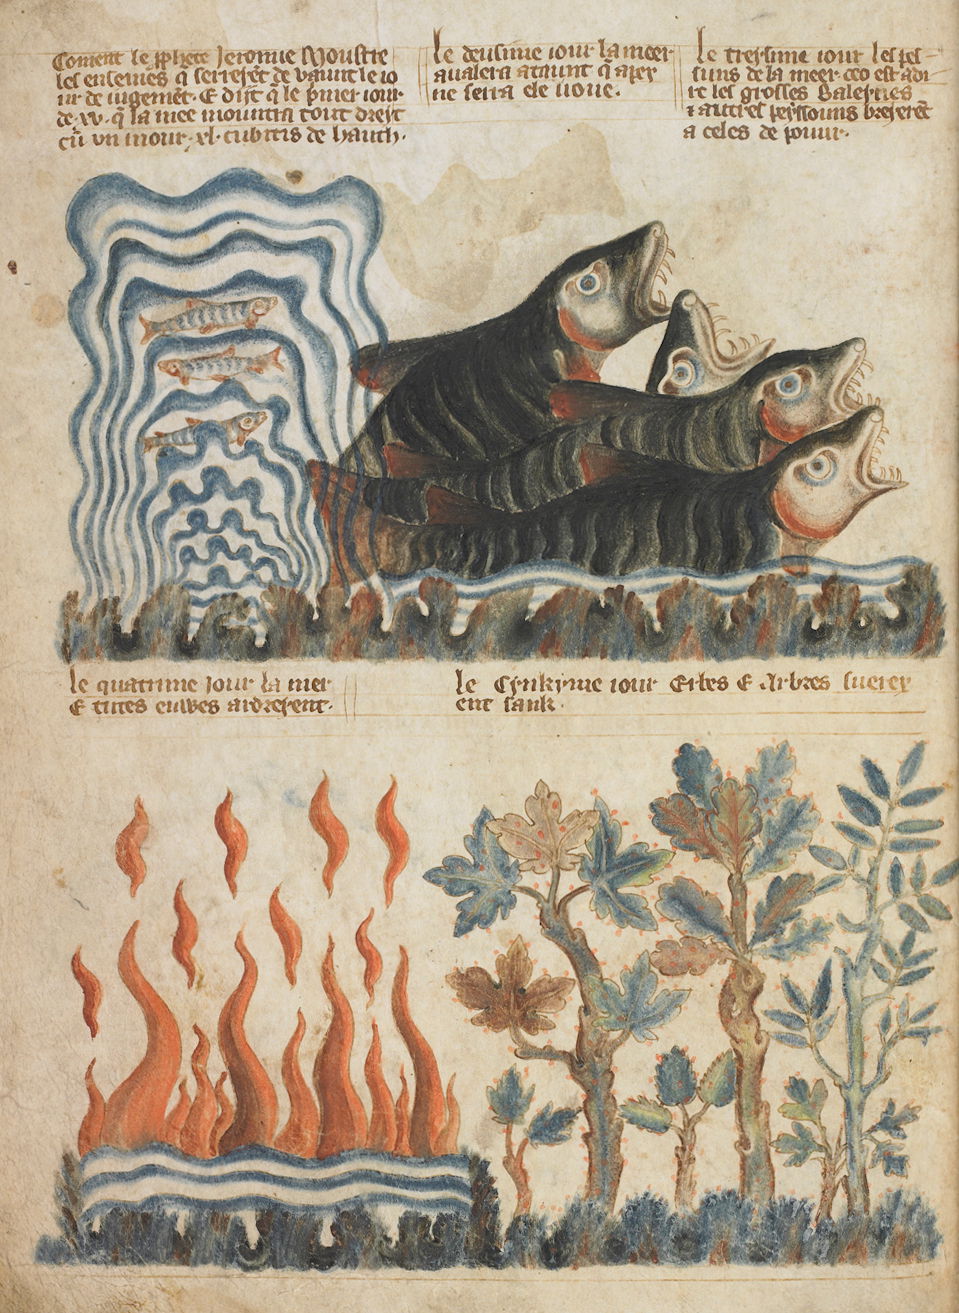 Coment le ꝓphete Jeronme Moustre
les enseines q̄ serrejēt de vaunt le io
ur de iugemēt. E dist q̄ le p̄mer iour
de .xv. q̄ la mee mountra tout drejt
cū vn mour .xl. cubitis de hauth.
Le deusime iour la meer
aualera ataunt q̄ apex
ne serra ele ueue.
Le tressime iour les pes-
suns de la meer ceo est a di-
re les grosses Baleynes
⁊ autres peyssouns brejerēt
a celes de pouur.
le quatrime Jour la mer
E tutes euwes arderejent.
le Cynkyme iour Erbes E Arbres suerey
ent sank.